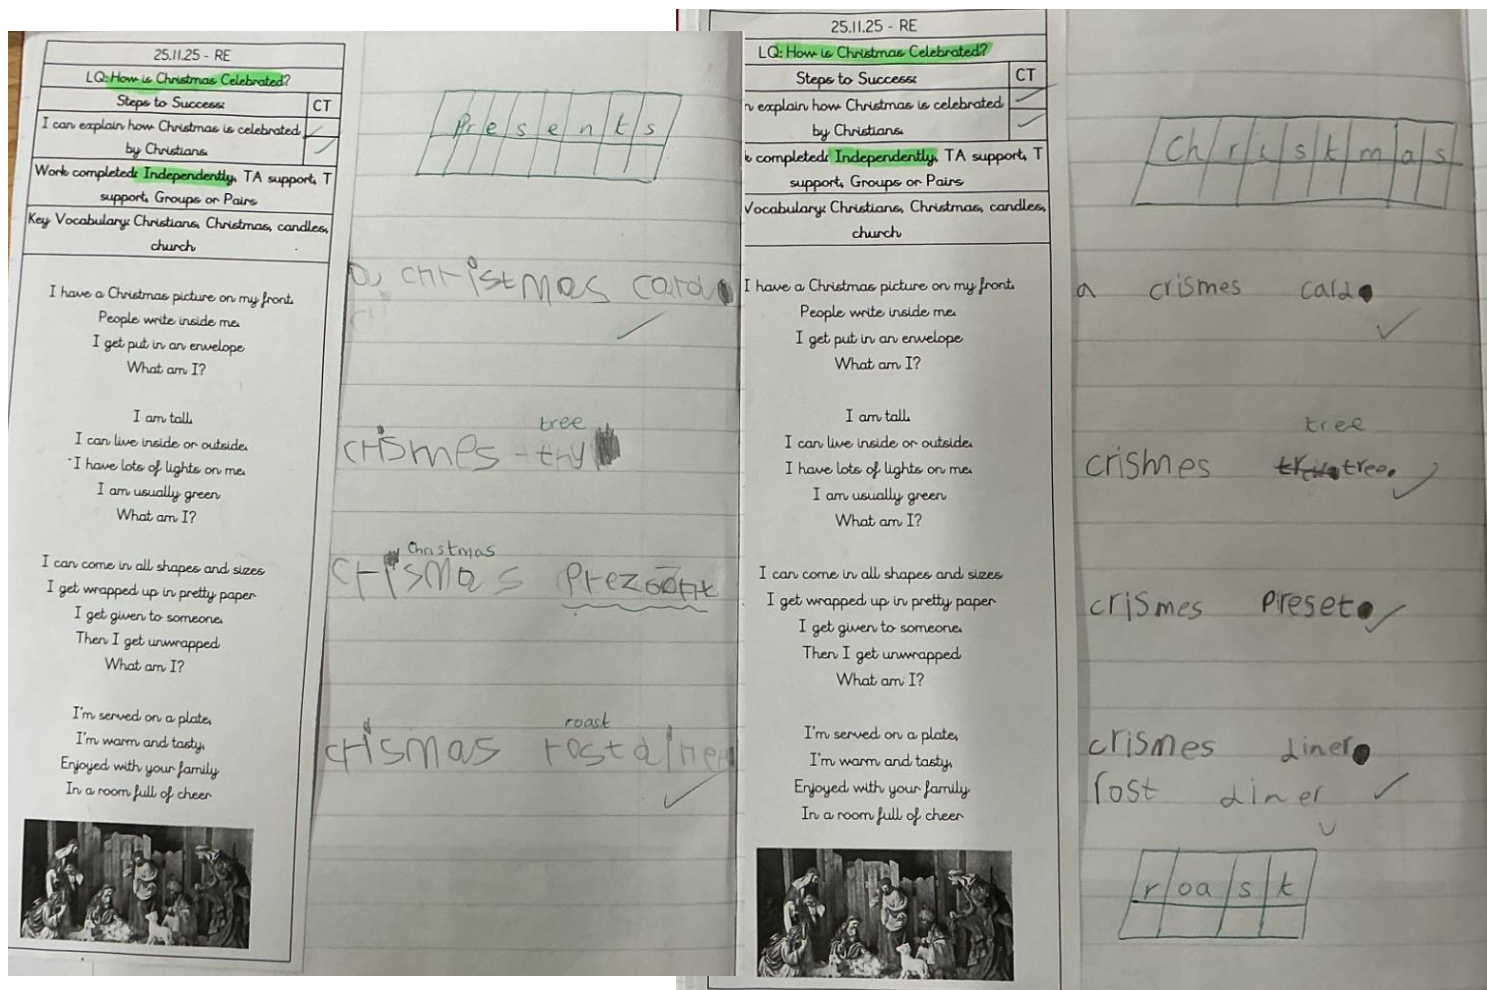 25.11.25 - RE
LQ: How is Christmas Celebrated?
Steps to Success:
CT
I can explain how Christmas is celebrated
by Christians.
Work completed: Independently, TA support, T
support, Groups or Pairs
Key Vocabulary: Christians, Christmas, candles,
church
I have a Christmas picture on my front.
People write inside me.
I get put in an envelope
What am I?
I am tall.
I can live inside or outside.
I have lots of lights on me.
I am usually green
What am I?
I can come in all shapes and sizes
I get wrapped up in pretty paper
I get given to someone.
Then I get unwrapped
What am I?
I'm served on a plate,
I'm warm and tasty,
Enjoyed with your family
In a room full of cheer
Presents
a christmas card
tree
crismes try
Christmas
crismas
roast
crismas rost diner
25.11.25 - RE
LQ: How is Christmas Celebrated?
Steps to Success:
CT
n explain how Christmas is celebrated
by Christians.
k completed: Independently, TA support, T
support, Groups or Pairs
Vocabulary: Christians, Christmas, candles,
church
I have a Christmas picture on my front.
People write inside me.
I get put in an envelope
What am I?
I am tall.
I can live inside or outside.
I have lots of lights on me.
I am usually green
What am I?
I can come in all shapes and sizes
I get wrapped up in pretty paper
I get given to someone.
Then I get unwrapped
What am I?
I'm served on a plate,
I'm warm and tasty,
Enjoyed with your family
In a room full of cheer
Christmas
a crismes card.
tree
crismes tree.
crismes preset.
crismes diner.
rost diner
roast